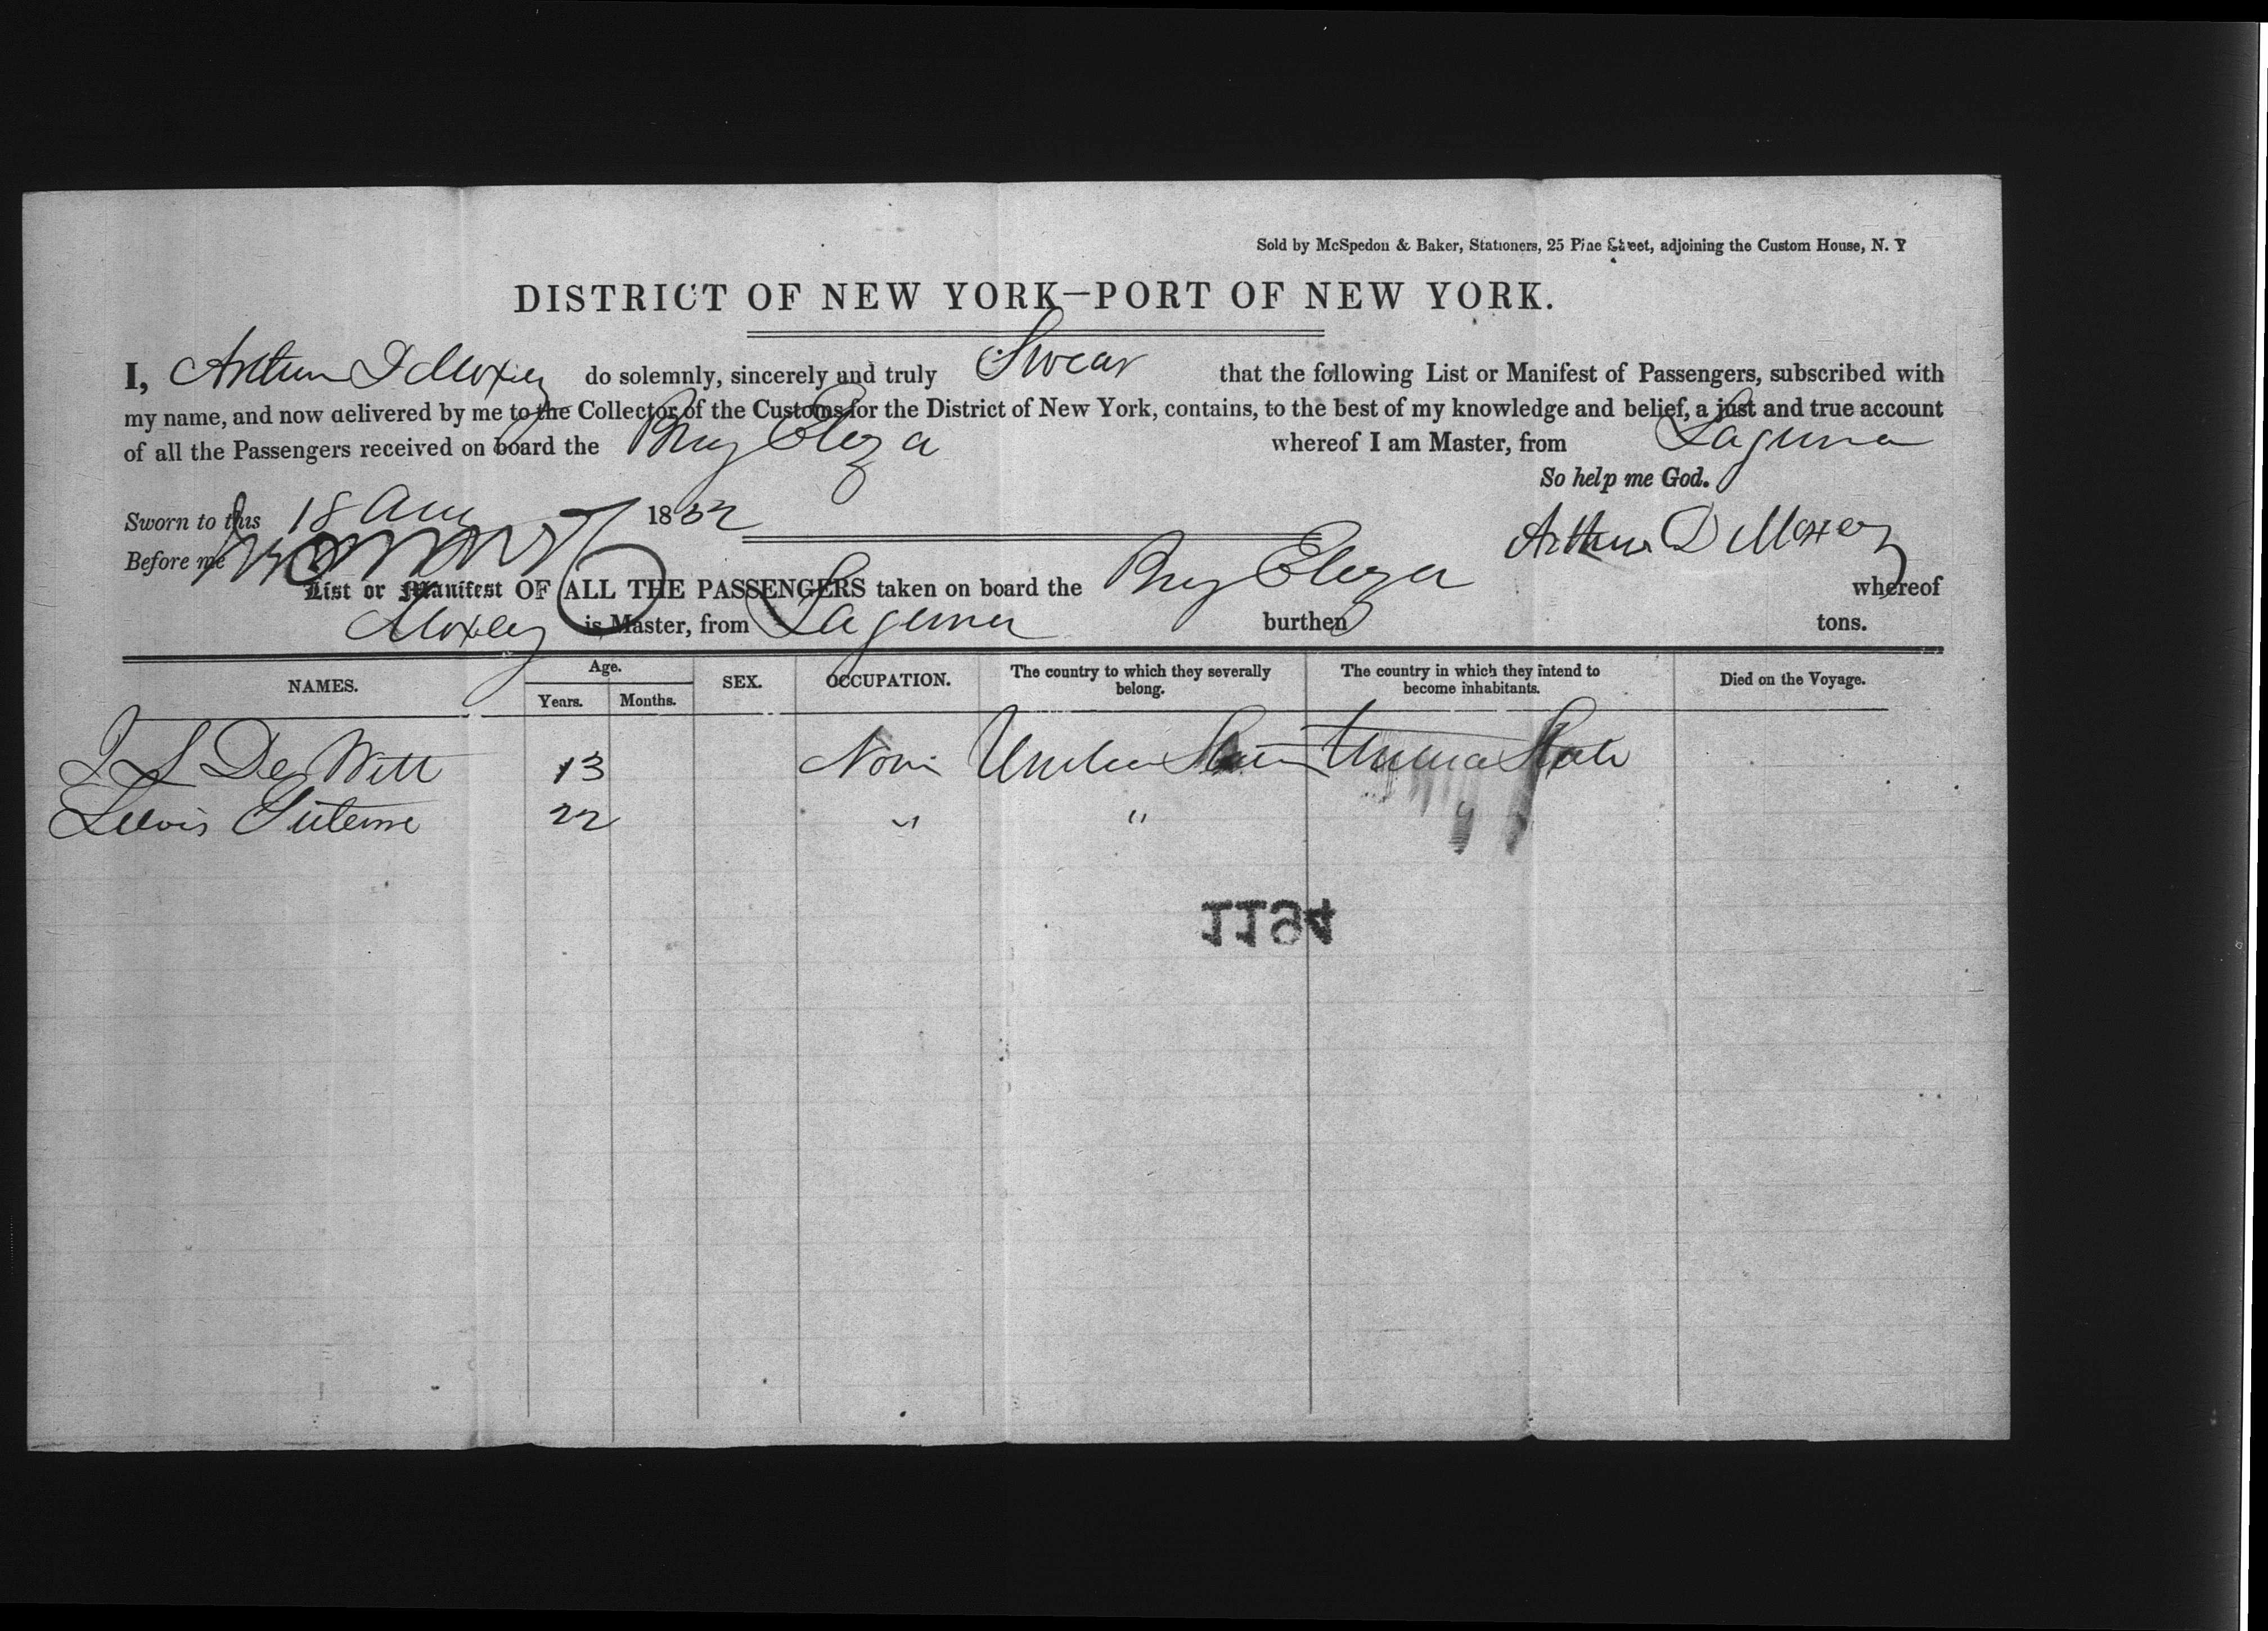 Sold by McSpedon & Baker, Stationers, 25 Pine Street, adjoining the Custom House, N. Y
DISTRICT OF NEW YORK—PORT OF NEW YORK.
I, Arthur D Moxey do solemnly, sincerely and truly Swear that the following List or Manifest of Passengers, subscribed with
my name, and now delivered by me to the Collector of the Customs for the District of New York, contains, to the best of my knowledge and belief, a just and true account
of all the Passengers received on board the Brig Eliza whereof I am Master, from Laguna
So help me God.
Sworn to this 18 Aug 1852
Arthur D Moxey
Before me
List or Manifest OF ALL THE PASSENGERS taken on board the Brig Eliza whereof
Moxey is Master, from Laguna burthen tons.
NAMES. Age. Years. Months. SEX. OCCUPATION. The country to which they severally belong. The country in which they intend to become inhabitants. Died on the Voyage.
De Witt 13 None United States United States
Lewis 22 " " "
1194